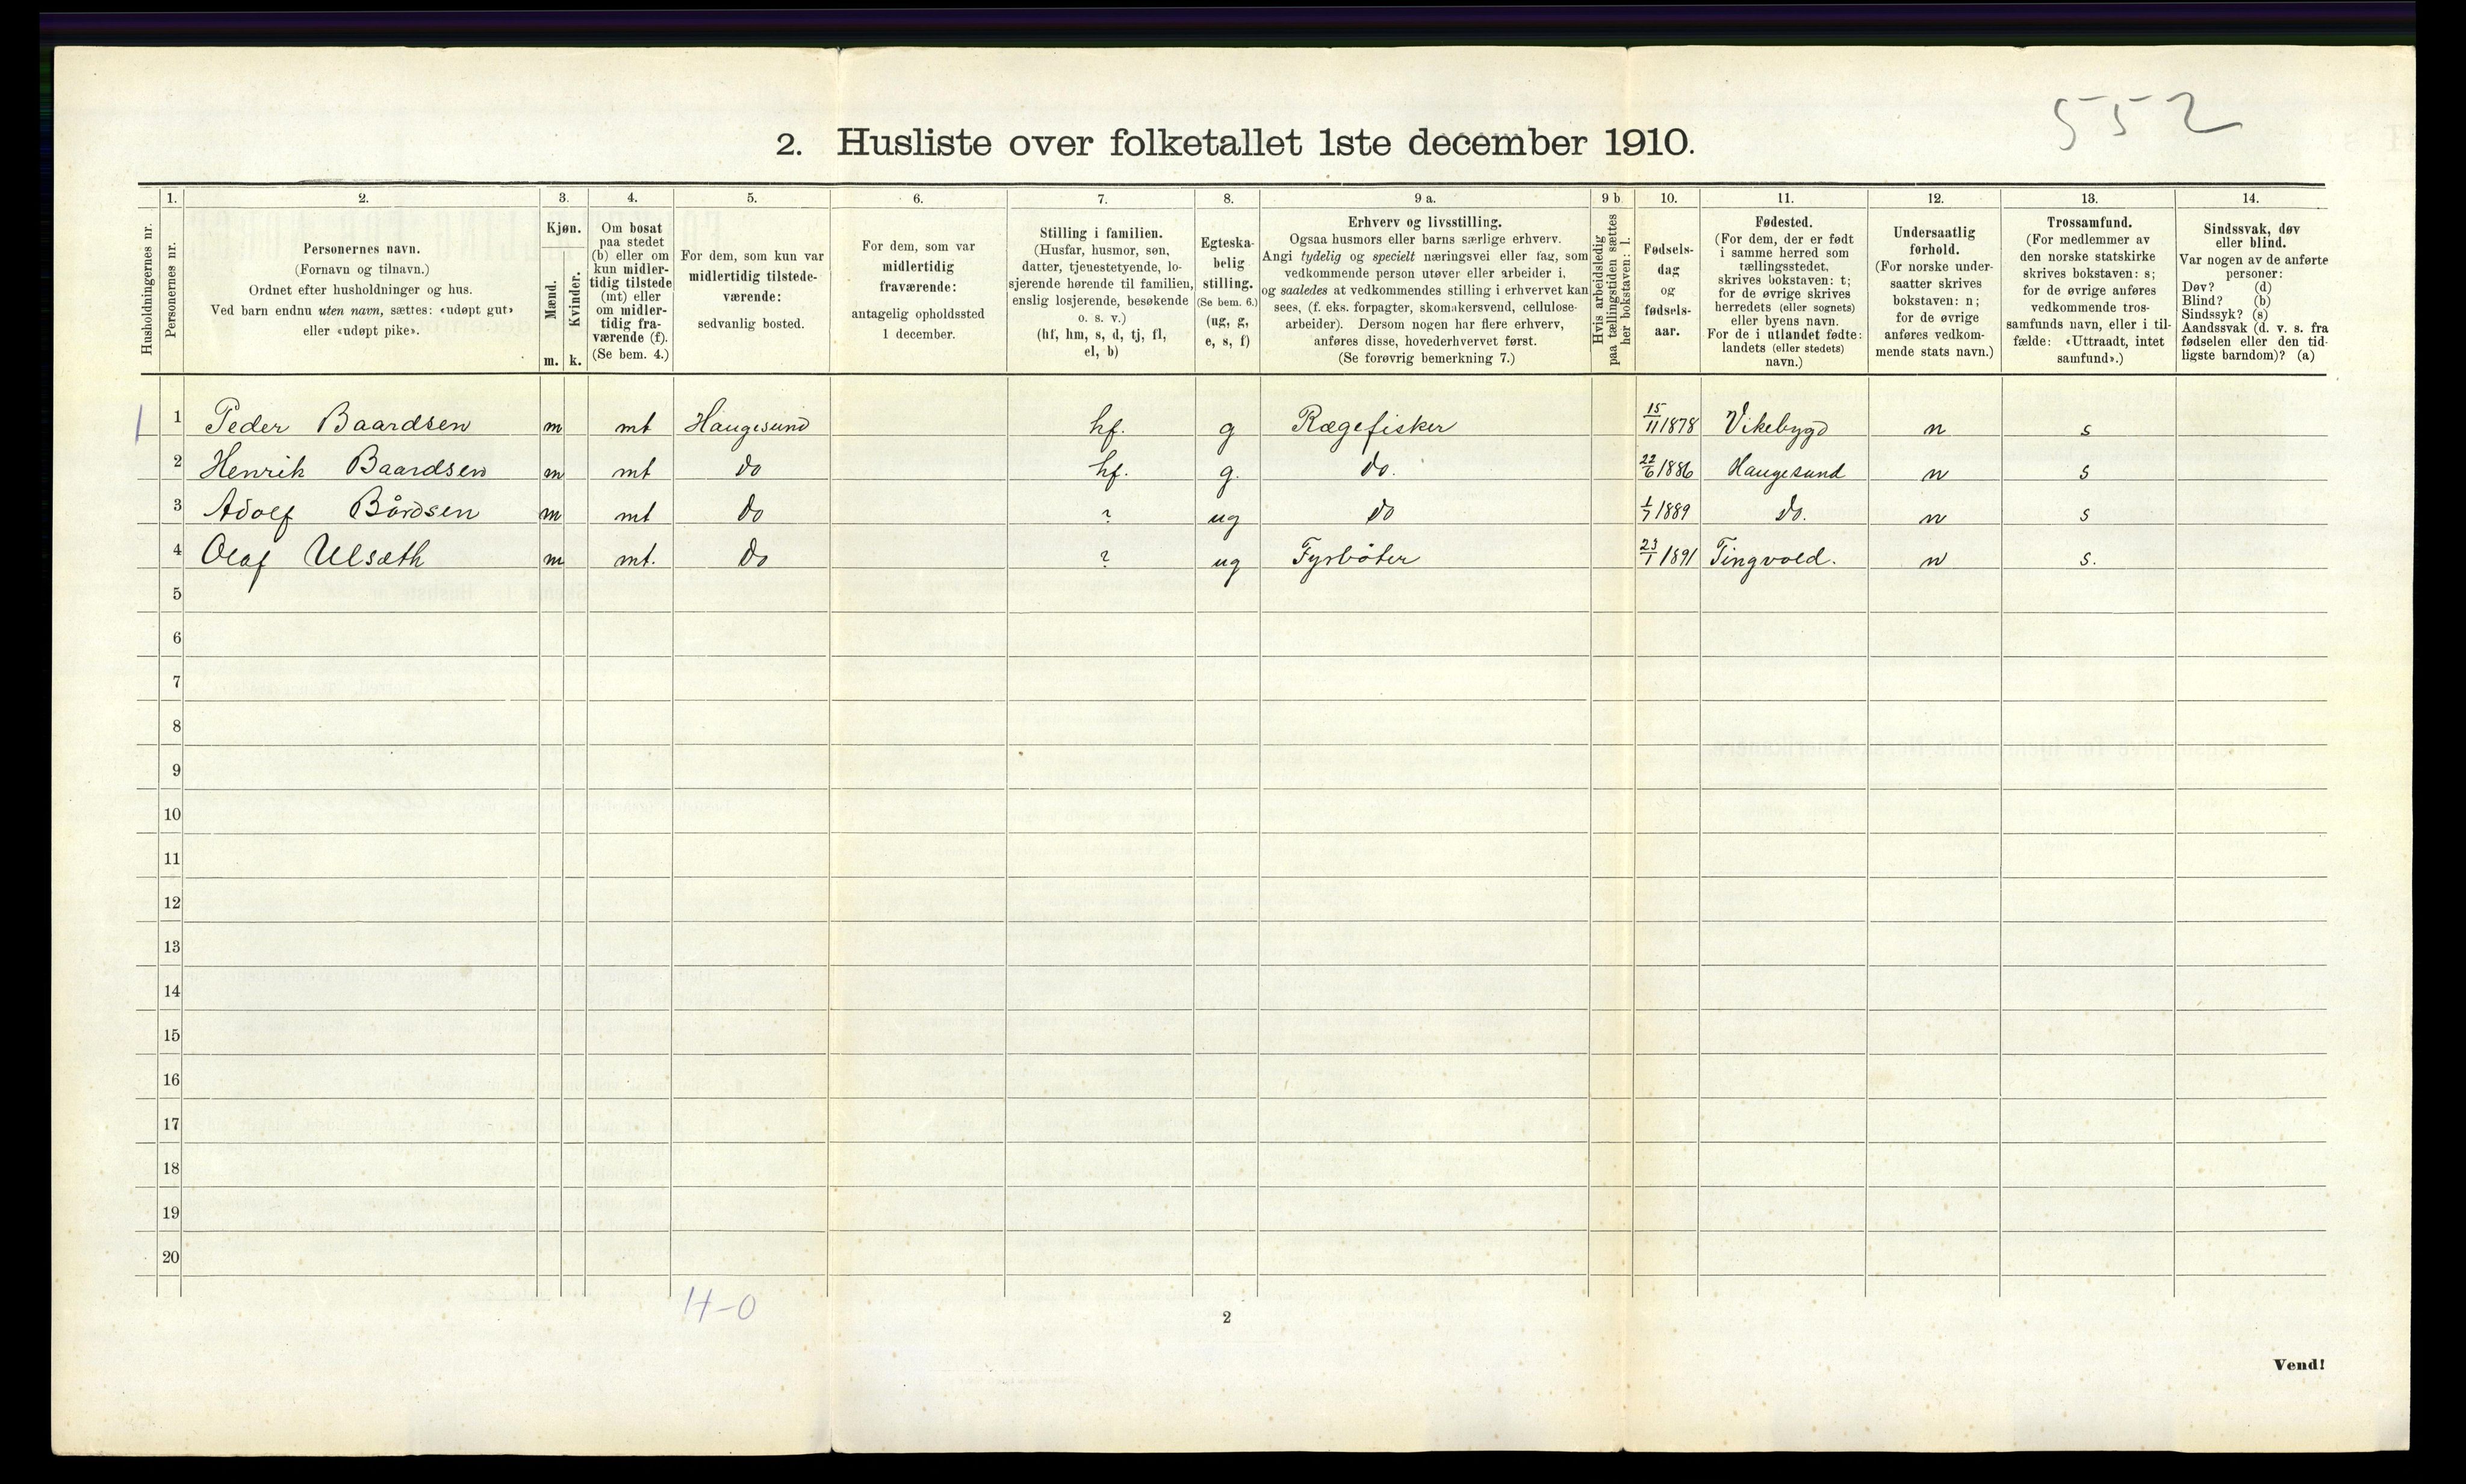 552
2. Husliste over folketallet 1ste december 1910.
Husholdningernes nr.
1.
Personernes nr.
2.
Personernes navn.
(Fornavn og tilnavn.)
Ordnet efter husholdninger og hus.
Ved barn endnu uten navn, sættes: «udøpt gut»
eller «udøpt pike».
3.
Kjøn.
Mænd.
Kvinder.
m. k.
4.
Om bosat
paa stedet
(b) eller om
kun midler-
tidig tilstede
(mt) eller
om midler-
tidig fra-
værende (f).
(Se bem. 4.)
5.
For dem, som kun var
midlertidig tilstede-
værende:
sedvanlig bosted.
6.
For dem, som var
midlertidig
fraværende:
antagelig opholdssted
1 december.
7.
Stilling i familien.
(Husfar, husmor, søn,
datter, tjenestetyende, lo-
sjerende hørende til familien,
enslig losjerende, besøkende
o. s. v.)
(hf, hm, s, d, tj, fl,
el, b)
8.
Egteska-
belig
stilling.
(Se bem. 6.)
(ug, g,
e, s, f)
9 a.
Erhverv og livsstilling.
Ogsaa husmors eller barns særlige erhverv.
Angi tydelig og specielt næringsvei eller fag, som
vedkommende person utøver eller arbeider i,
og saaledes at vedkommendes stilling i erhvervet kan
sees, (f. eks. forpagter, skomakersvend, cellulose-
arbeider). Dersom nogen har flere erhverv,
anføres disse, hovederhvervet først.
(Se forøvrig bemerkning 7.)
9 b
Hvis arbeidsledig
paa tællingstiden sættes
her bokstaven: l.
10.
Fødsels-
dag
og
fødsels-
aar.
11.
Fødested.
(For dem, der er født
i samme herred som
tællingsstedet,
skrives bokstaven: t;
for de øvrige skrives
herredets (eller sognets)
eller byens navn.
For de i utlandet fødte:
landets (eller stedets)
navn.)
12.
Undersaatlig
forhold.
(For norske under-
saatter skrives
bokstaven: n;
for de øvrige
anføres vedkom-
mende stats navn.)
13.
Trossamfund.
(For medlemmer av
den norske statskirke
skrives bokstaven: s;
for de øvrige anføres
vedkommende tros-
samfunds navn, eller i til-
fælde: «Uttraadt, intet
samfund».)
14.
Sindssvak, døv
eller blind.
Var nogen av de anførte
personer:
Døv? (d)
Blind? (b)
Sindssyk? (s)
Aandssvak (d. v. s. fra
fødselen eller den tid-
ligste barndom)? (a)
1 1 Peder Baardsen m mt Haugesund hf. g Rægefisker 15/11 1878 Vikebygd n s
2 Henrik Baardsen m mt do hf. g. do. 22/6 1886 Haugesund n s
3 Adolf Bårdsen m mt do ? ug do 1/7 1889 do. n s
4 Olaf Ulsæth m mt. do ? ug Fyrbøter 23/1 1891 Tingvold. n s.
5
6
7
8
9
10
11
12
13
14
15
16
17
18
19
20
4-0
2
Vend!